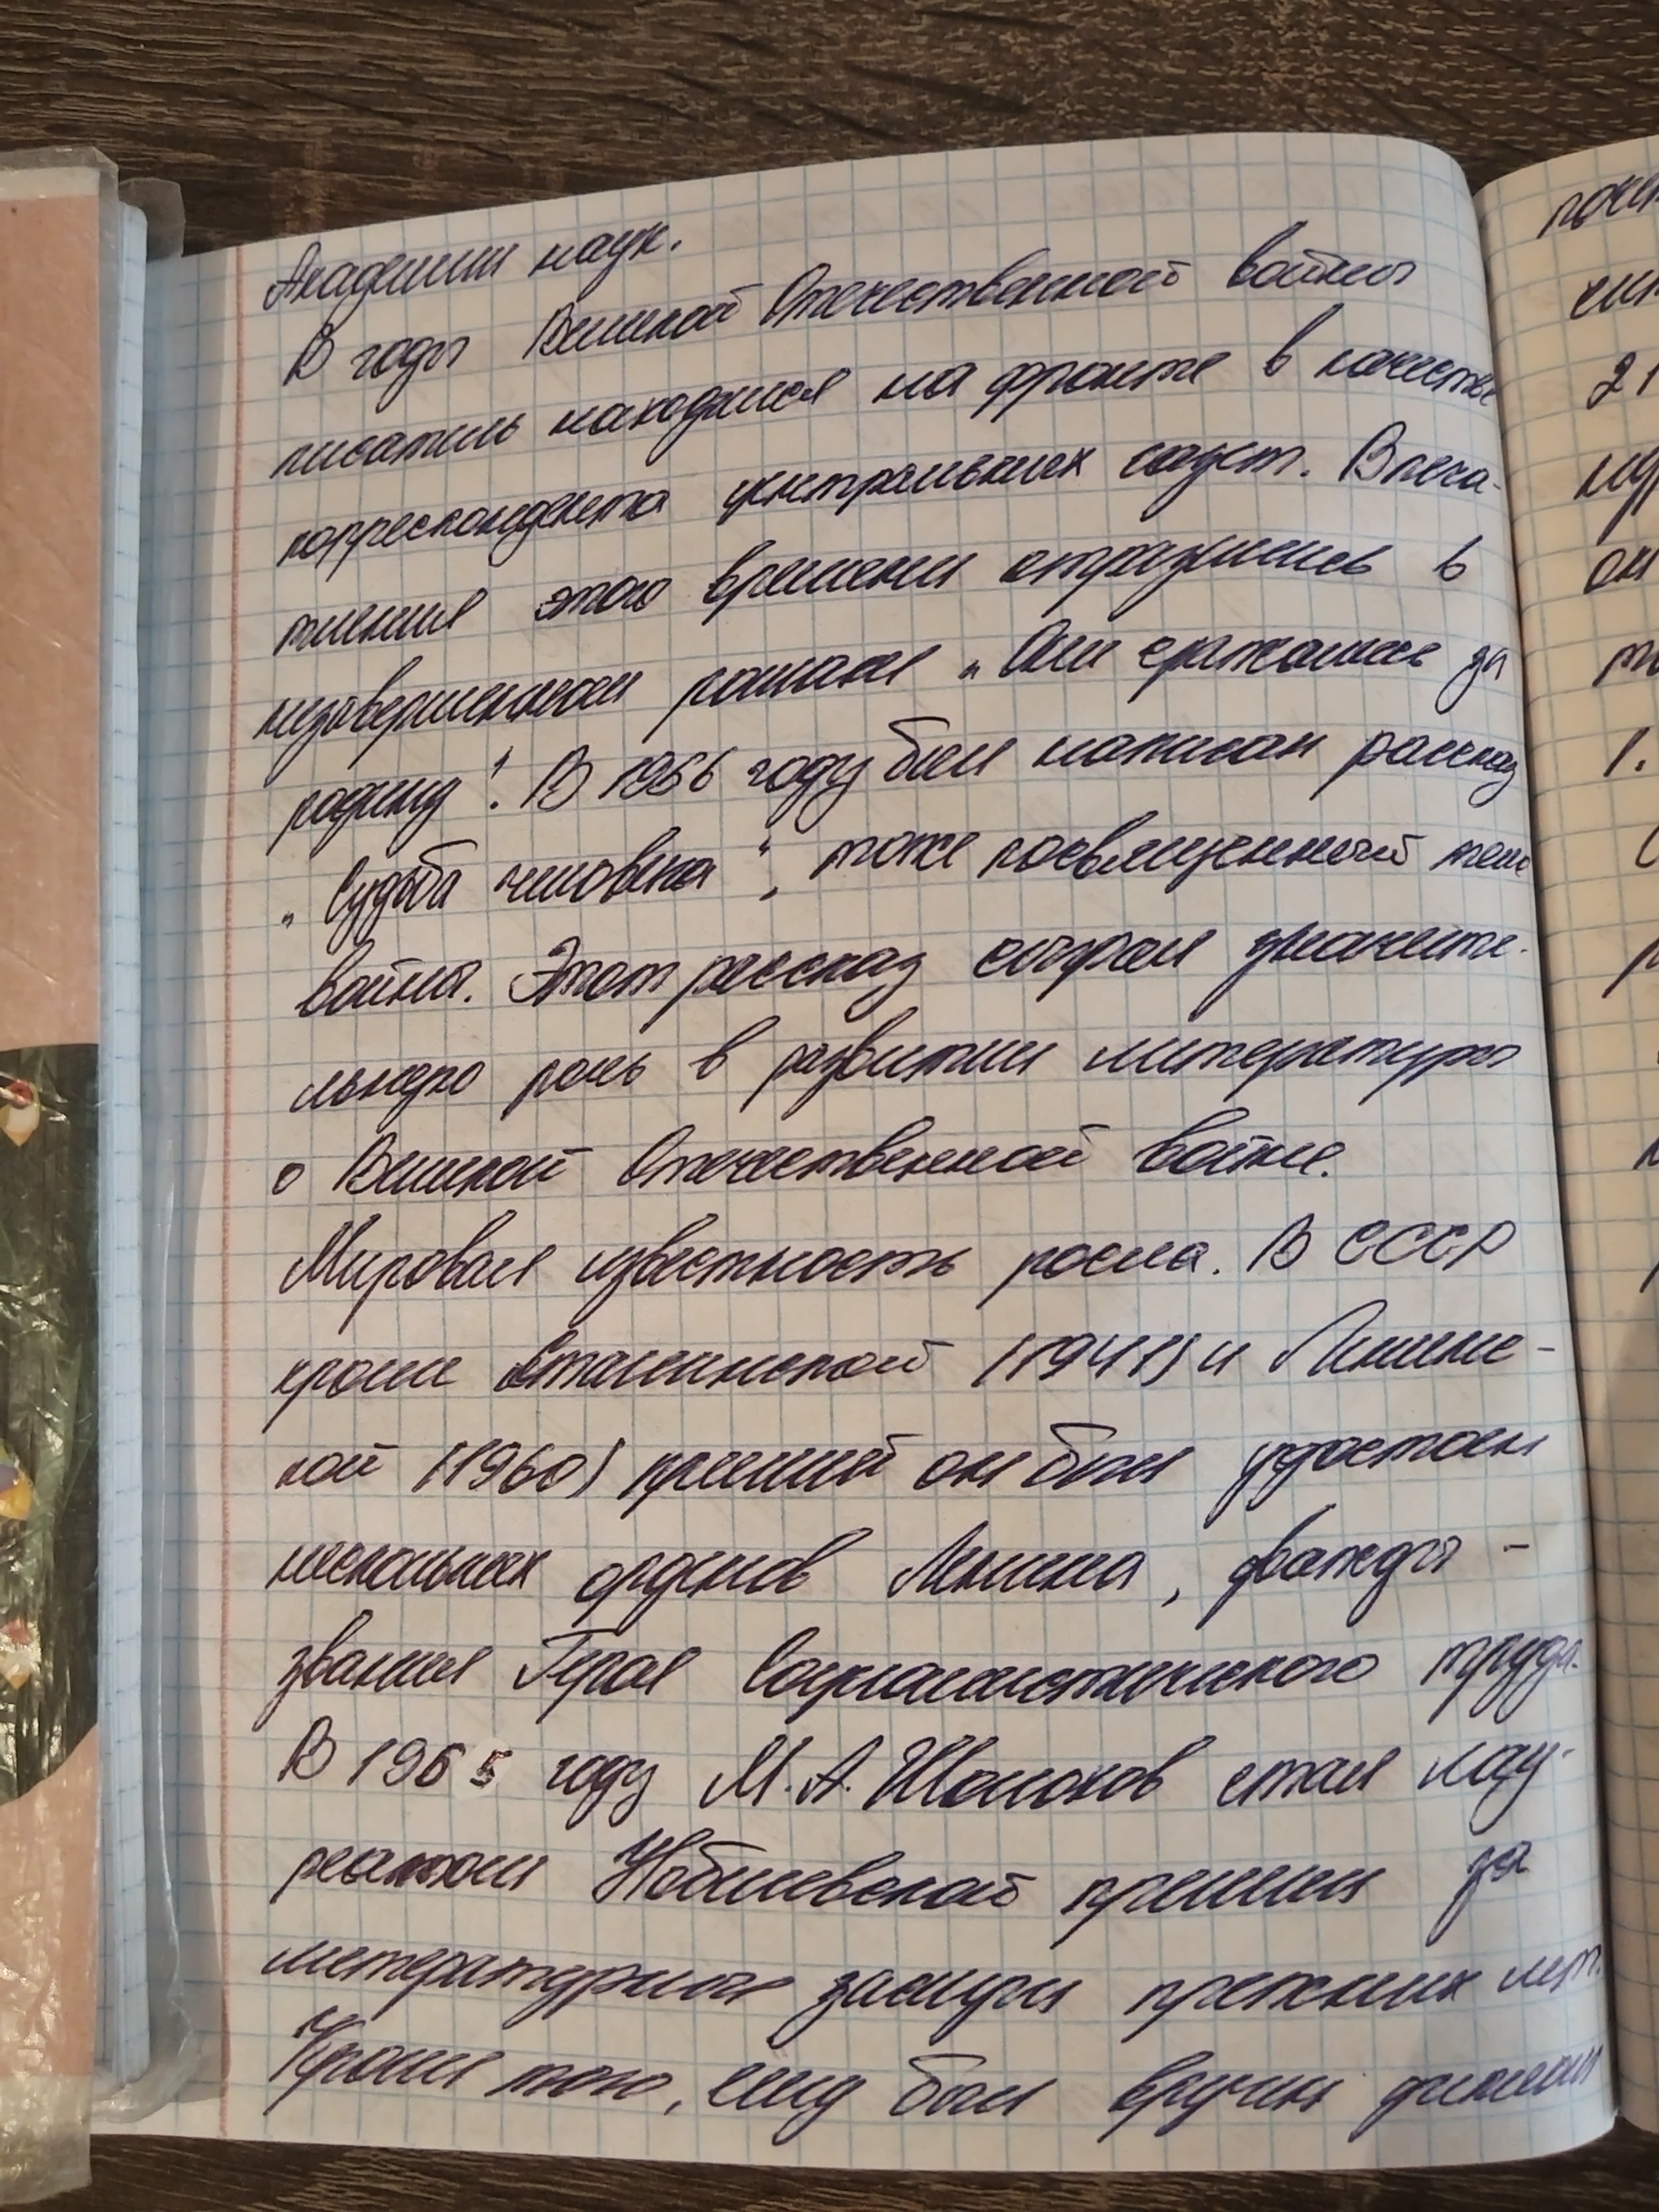 Академии наук.
В годы Великой Отечественной войны
писатель находился на фронте в качестве
корреспондента центральных газет. Впеча-
тления этого времени отразились в
незавершенном романе „Они сражались за
родину“. В 1956 году был написан рассказ
„Судьба человека“, тоже посвященный теме
войны. Этот рассказ сыграл значите-
льную роль в развитии литературы
о Великой Отечественной войне.
Мировая известность росла. В СССР
кроме Сталинской (1941) и Ленинс-
кой (1960) премий он был удостоен
нескольких орденов Ленина, дважды -
звания Героя Социалистического труда.
В 1965 году М. А. Шолохов стал лау-
реатом Нобелевской премии за
литературные заслуги прежних лет.
Кроме того, ему был вручен диплом
2
1.